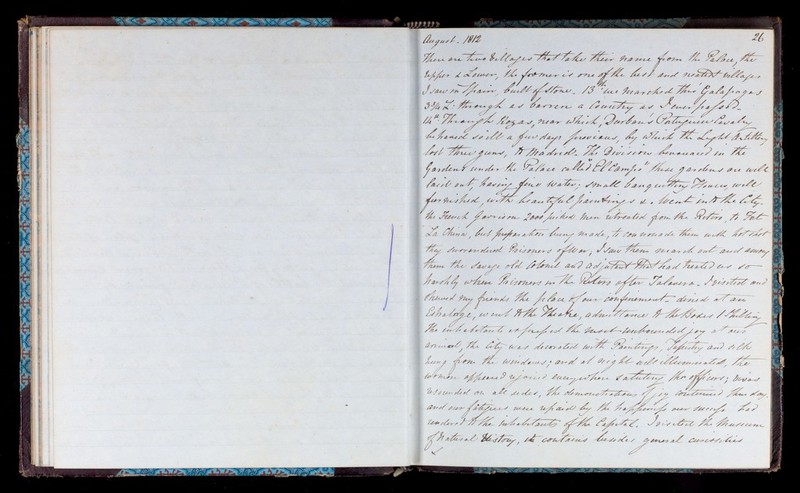 August. 1812 26
There are two Villages that take their name from the Palace, the
upper & Lower, the former is one of the best and neatest villages
I saw in Spain, built of stone. 13th we marched thro' Galapagos
3¼ L. through as barren a Country as I ever passed.
14th Through Rozas, near which, Durban's Portuguese Cavalry
behaved so ill a few days previous, by which the Light Artillery
lost three guns, to Madrid. The Division bivouaced in the
Gardens under the Palace called "El Campo" these gardens are well
laid out, having fine water; small banquetting Houses, well
furnished, with beautiful paintings &. Went into the City.
the French Garrison 2000 picked men retreated from the Retiro, to Fort
La China, but preparation being made, to cannonade them with hot shot
they surrendered Prisoners of War, I saw them march out and among
them the savage old Colonel and adjutant that had treated us so
harshly when Prisoners in the Retiro after Talavera. I visited and
shewed my friends the place of our confinement dined at an
Eshelage, went to the Theatre, admittance to the Boxes 1 shilling
The inhabitants expressed the most unbounded joy at our
arrival, the City was decorated with Paintings, Tapestry and silk
hung from the windows, and at night well illuminated, the
women appeared everywhere saluting the officers; vivas
resounded on all sides, the demonstrations of joy continued three days
and our fatigues were repaid by the happiness our success had
rendered to the inhabitants of the Capital. I visited the Museum
of Natural History, it contains besides general curiosities